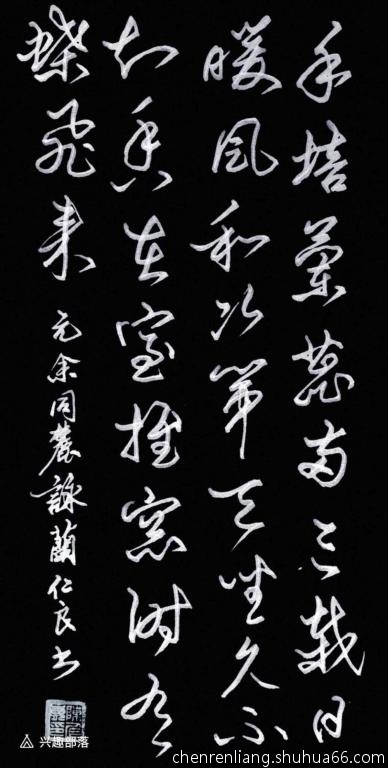 手培蘭蕊两三栽日
暖风和次第开坐久不
知香在室推窗时有
蝶飛来
元余同麓詠蘭仁良书
兴趣部落
chenrenliang.shuhua66.com